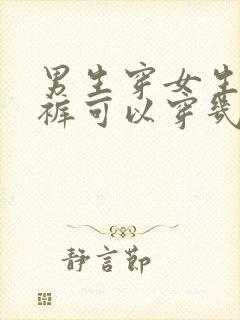 男生穿女生
裤可以穿几
静言郖